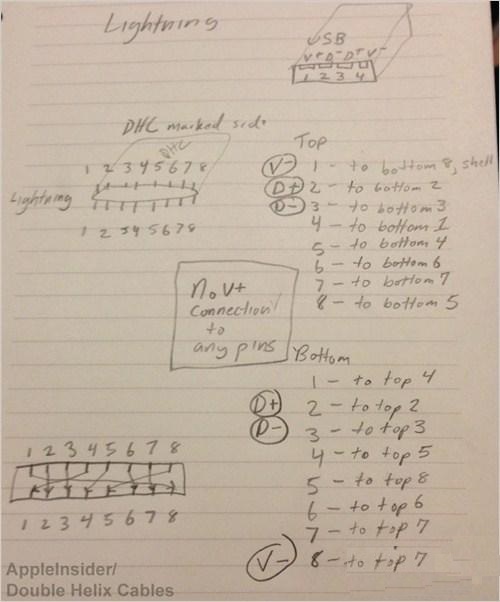 Lightning
USB
V+ D- D+ V-
1 2 3 4
DHC marked side
DHC
1 2 3 4 5 6 7 8
Lightning
1 2 3 4 5 6 7 8
Top
V- 1 - to bottom 8, shell
D+ 2 - to bottom 2
D- 3 - to bottom 3
4 - to bottom 1
5 - to bottom 4
6 - to bottom 6
7 - to bottom 7
8 - to bottom 5
No V+
connection
to
any pins
Bottom
1 - to top 4
D+ 2 - to top 2
D- 3 - to top 3
4 - to top 5
5 - to top 8
6 - to top 6
7 - to top 7
V- 8 - to top 7
1 2 3 4 5 6 7 8
1 2 3 4 5 6 7 8
AppleInsider/
Double Helix Cables